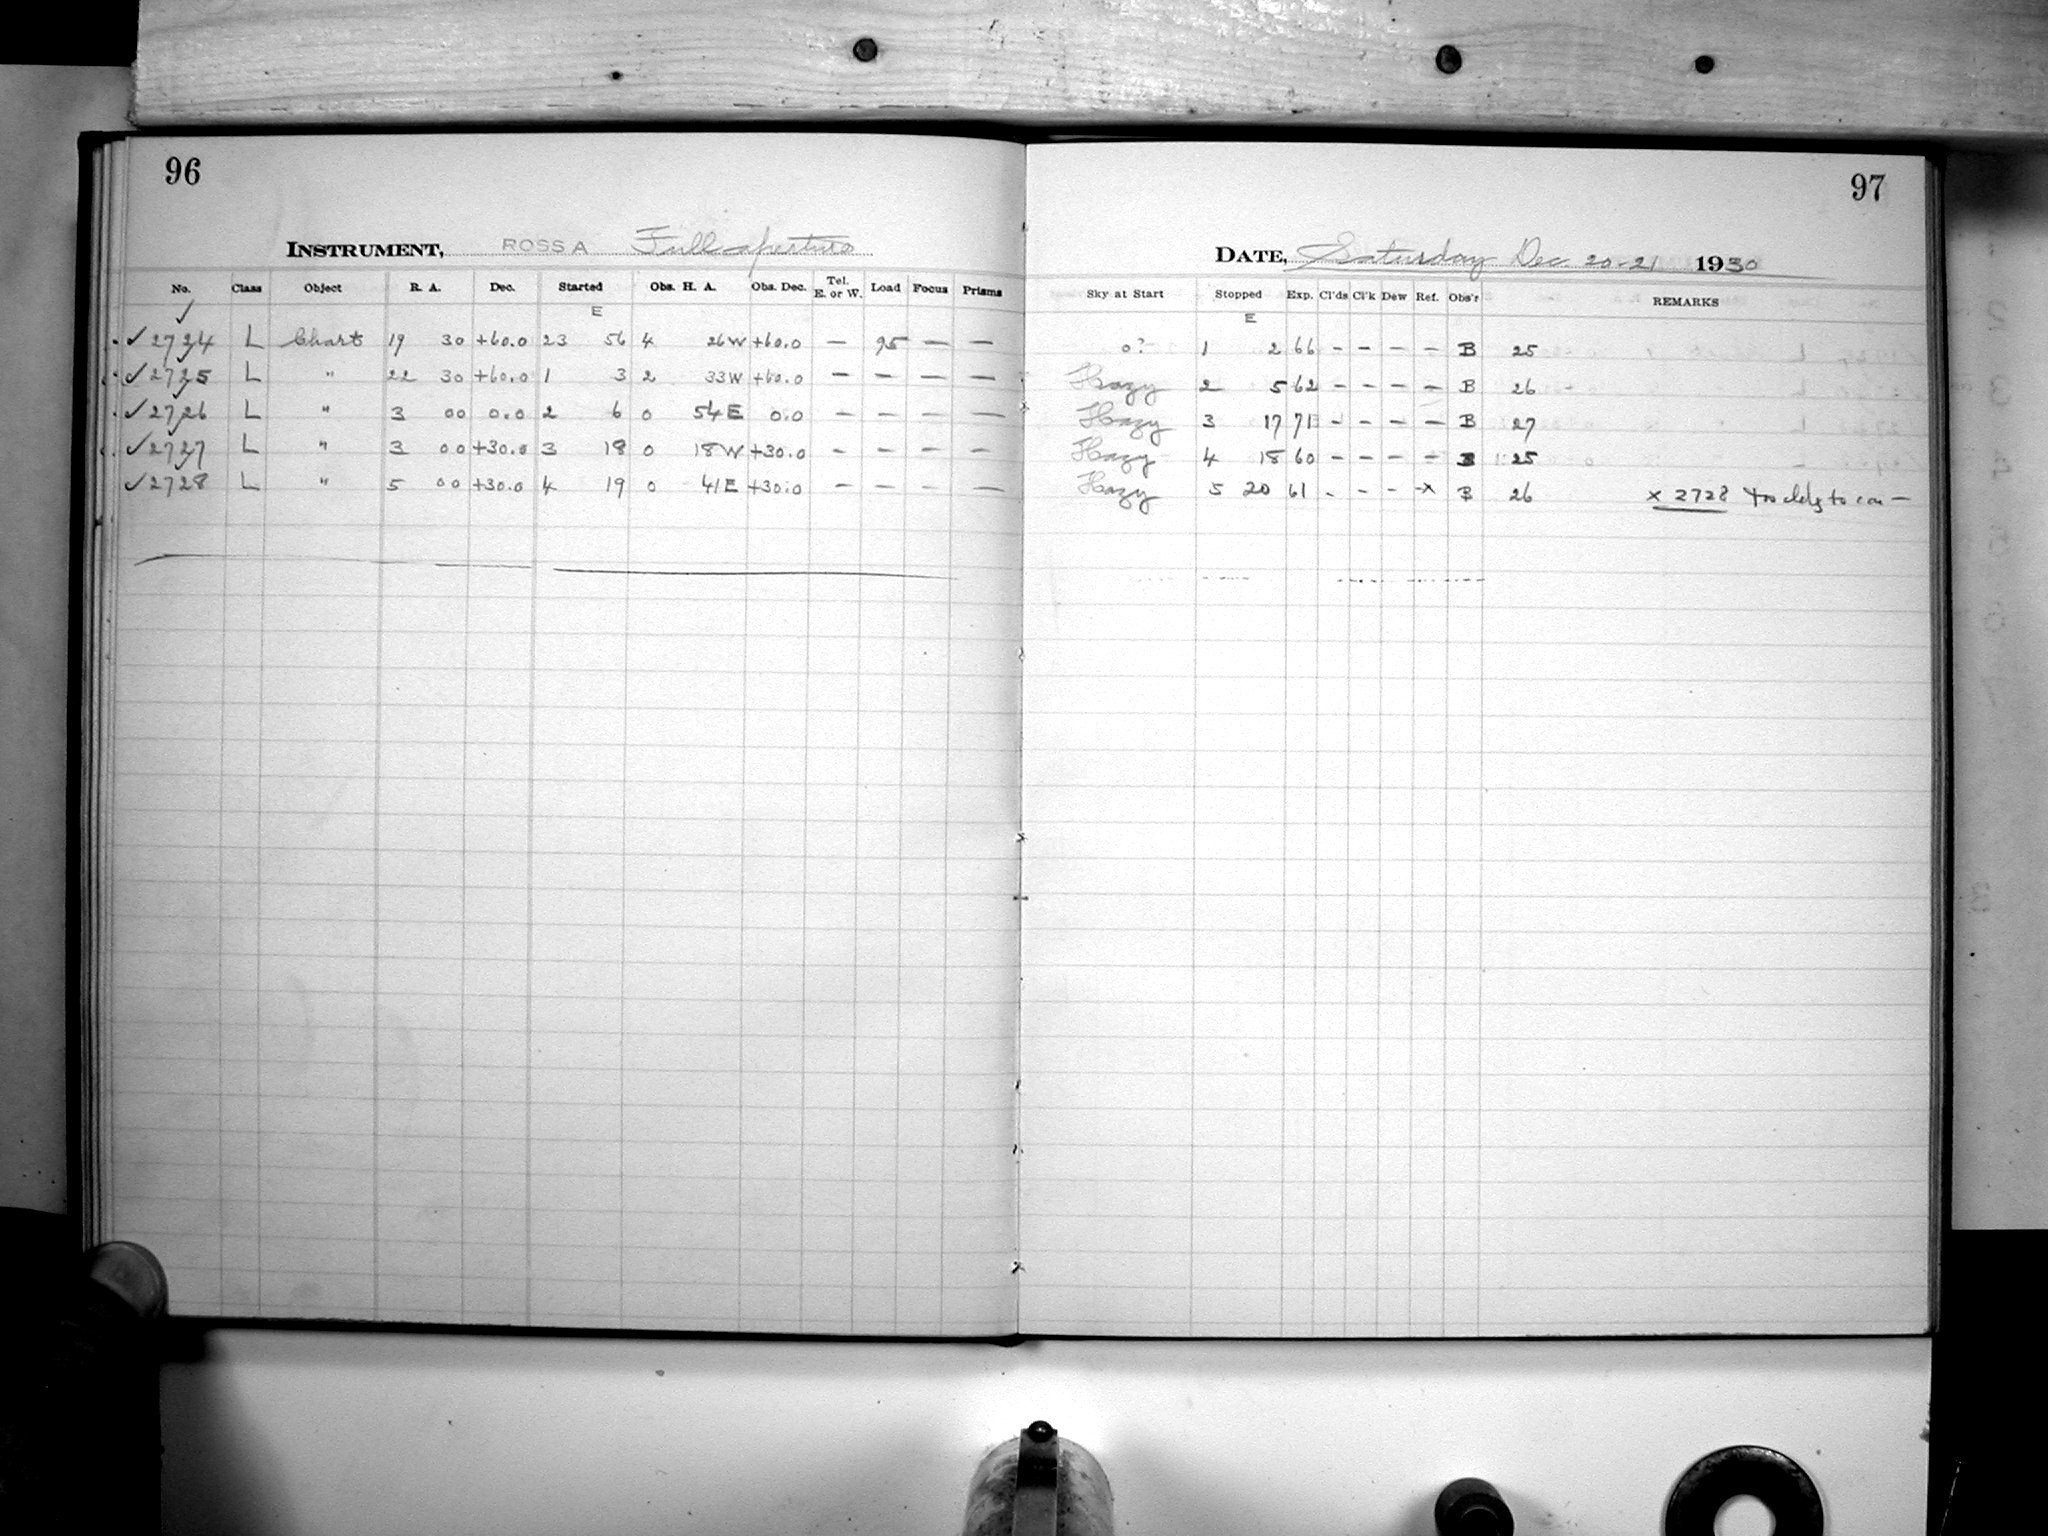 96
INSTRUMENT, ROSS A Full aperture
No. Class Object R. A. Dec. Started Obs. H. A. Obs. Dec. Tel. E. or W. Load Focus Prisms
E
✓ 2724 L Chart 19 30 +60.0 23 56 4 26W +60.0 — 95 — —
✓ 2725 L " 22 30 +60.0 1 3 2 33W +60.0 — — — —
✓ 2726 L " 3 00 0.0 2 6 0 54E 0.0 — — — —
✓ 2727 L " 3 00 +30.0 3 18 0 18W +30.0 — — — —
✓ 2728 L " 5 00 +30.0 4 19 0 41E +30.0 — — — —
97
DATE, Saturday Dec. 20-21 1930
Sky at Start Stopped Exp. Cl'ds Cl'k Dew Ref. Obs'r REMARKS
E
0? 1 2 66 — — — — B 25
Hazy 2 5 62 — — — — B 26
Hazy 3 17 71 — — — — B 27
Hazy 4 18 60 — — — — B 25
Hazy 5 20 61 - - - -x B 26 x 2728 to